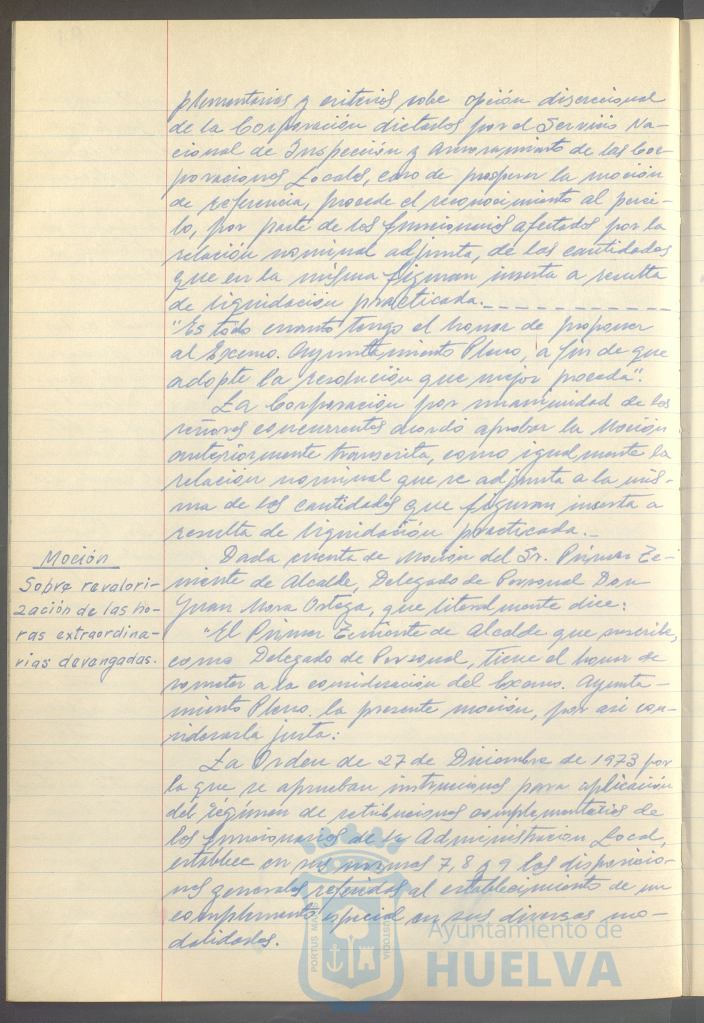 plementarias y criterios sobre opción discrecional
de la Corporación dictados por el Servicio Na-
cional de Inspección y Asesoramiento de las Cor-
poraciones Locales, caso de prosperar la moción
de referencia, procede el reconocimiento al perci-
bo, por parte de los funcionarios afectados por la
relación nominal adjunta, de las cantidades
que en la misma figuran inserta a resulta
de liquidación practicada.
"Es todo cuanto tengo el honor de proponer
al Excmo. Ayuntamiento Pleno, a fin de que
adopte la resolución que mejor proceda".
La Corporación por unanimidad de los
señores concurrentes acordó aprobar la Moción
anteriormente transcrita, como igualmente la
relación nominal que se adjunta a la mis-
ma de las cantidades que figuran inserta a
resulta de liquidación practicada.
Moción
Sobre revalori-
zación de las ho-
ras extraordina-
rias devangadas.
Dada cuenta de Moción del Sr. Primer Te-
niente de Alcalde, Delegado de Personal Don
Juan Mora Ortega, que literalmente dice:
"El Primer Teniente de Alcalde que suscribe,
como Delegado de Personal, tiene el honor de
someter a la consideración del Excmo. Ayunta-
miento Pleno la presente moción, por así con-
siderarla justa:
La Orden de 27 de Diciembre de 1973 por
la que se aprueban instrucciones para aplicación
del régimen de retribuciones complementarias de
los funcionarios de la Administración Local,
establece en sus normas 7, 8 y 9 las disposicio-
nes generales referidas al establecimiento de un
complemento especial en sus diversas mo-
dalidades.
PORTUS MARIS
CUSTODIA
Ayuntamiento de
HUELVA